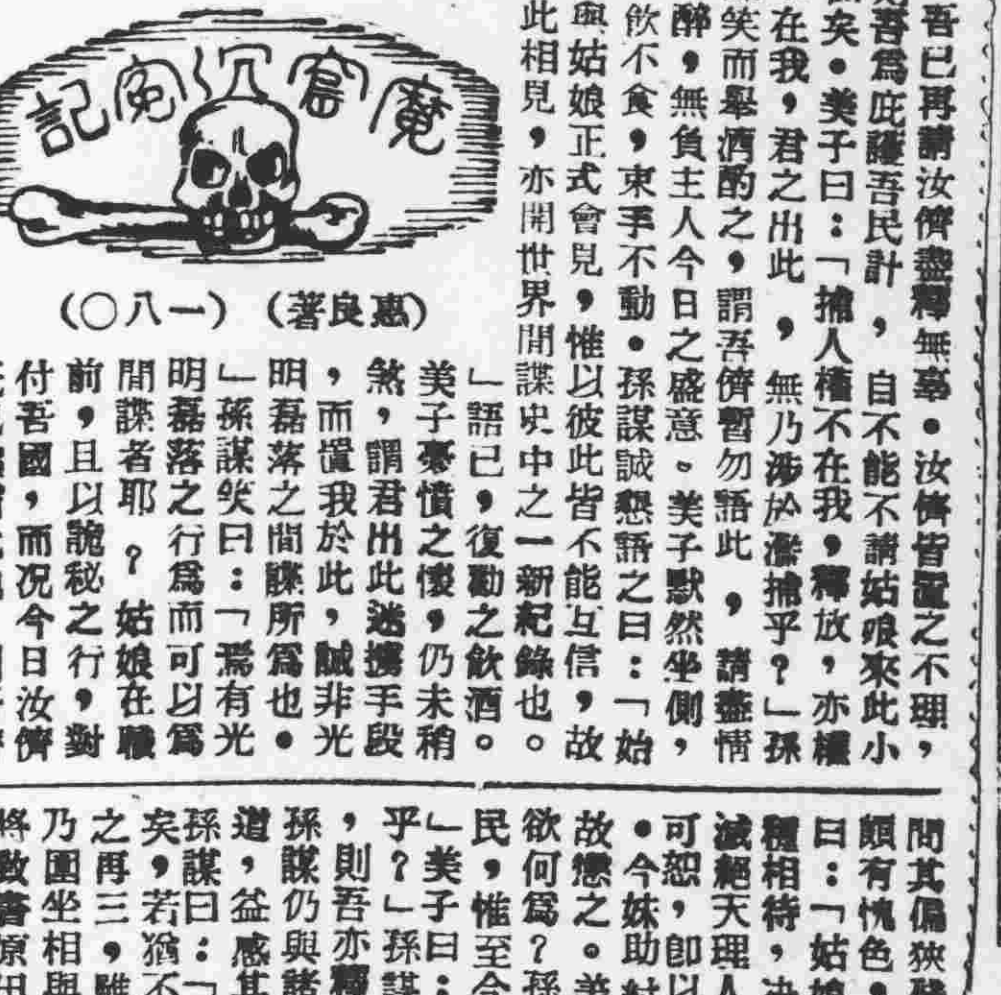 吾已再請汝儕盡釋無辜。汝儕皆置之不理，
吾爲庇護吾民計，自不能不請姑娘來此小
矣。美子曰：「捕人權不在我，釋放，亦權
在我，君之出此，無乃涉於濫捕乎？」孫
笑而舉酒酌之，謂吾儕暫勿語此，請盡情
醉，無負主人今日之盛意。美子默然坐側，
飲不食，束手不動。孫謀誠懇語之曰：「姑
與姑娘正式會見，惟以彼此皆不能互信，故
此相見，亦開世界間諜史中之一新紀錄也。
魔窟沉寃記
（惠良著）（一八〇）
」語已，復勸之飲酒。
美子憂憤之懷，仍未稍
煞，謂君出此迷擄手段
，而置我於此，誠非光
明磊落之間諜所爲也。
」孫謀笑曰：「焉有光
明磊落之行爲而可以爲
間諜者耶？姑娘在職
前，且以詭秘之行，對
付吾國，而况今日汝儕
問其偏狹
頗有愧色，
曰：「姑娘
種相待，决
滅絕天理人
可恕，卽以
。今妹助紂
故戀之。美
欲何爲？孫
民，惟至今
」美子曰：
乎？」孫謀
，則吾亦釋
孫謀仍與諸
道，益感其
孫謀曰：「
矣，若猶不
之再三，雖
乃圍坐相與
將致書原田